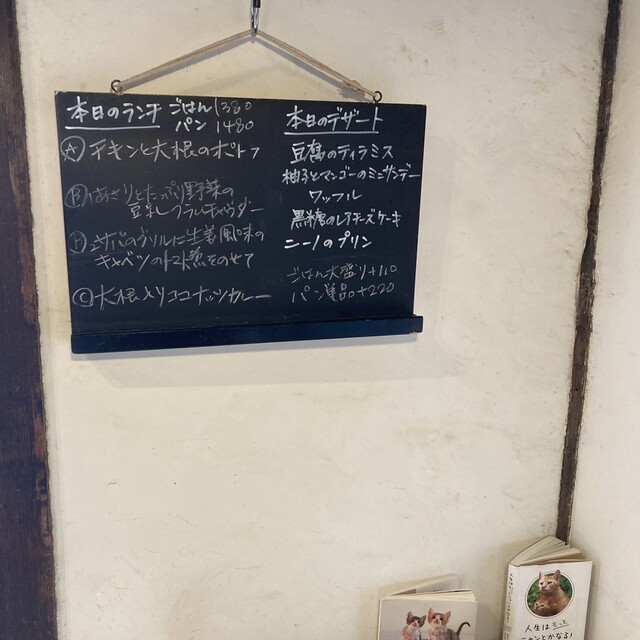 本日のランチ ごはん 1380
パン 1480
Ⓐ チキンと大根のポトフ
Ⓑ あさりとたっぷり野菜の
豆乳クラムチャウダー
サバのグリルに生姜風味の
キャベツのトマト煮をのせて
Ⓒ 大根 ココナッツカレー
本日のデザート
豆腐のティラミス
柚子とマンゴーのミニサンデー
ワッフル
黒糖のレアチーズケーキ
ニーノのプリン
ごはん大盛り+110
パン単品+220
人生はもっと
ニャンとかなる!